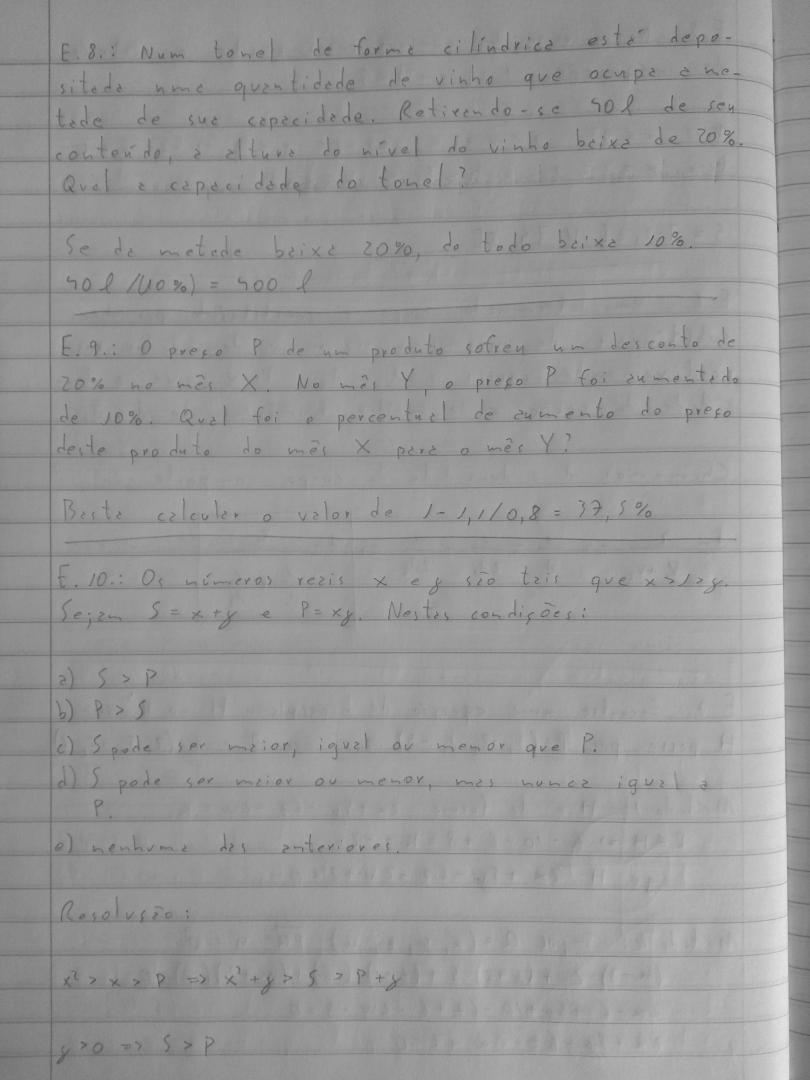 E.8.: Num tonel de forma cilíndrica está depo-
sitada uma quantidade de vinho que ocupa a me-
tade de sua capacidade. Retirando-se 40 l de seu
conteúdo, a altura do nível do vinho baixa de 20%.
Qual a capacidade do tonel?
Se da metade baixa 20%, do todo baixa 10%.
40 l /(10%) = 400 l
E.9.: O preço P de um produto sofreu um desconto de
20% no mês X. No mês Y, o preço P foi aumentado
de 10%. Qual foi o percentual de aumento do preço
deste produto do mês X para o mês Y?
Basta calcular o valor de 1-1,1/0,8 = 37,5%
E.10.: Os números reais x e y são tais que x>1>y.
Sejam S = x+y e P = xy. Nestas condições:
a) S > P
b) P > S
c) S pode ser maior, igual ou menor que P.
d) S pode ser maior ou menor, mas nunca igual a
P.
e) nenhuma das anteriores.
Resolução:
x² > x > P => x²+y > S > P+y
y>0 => S > P